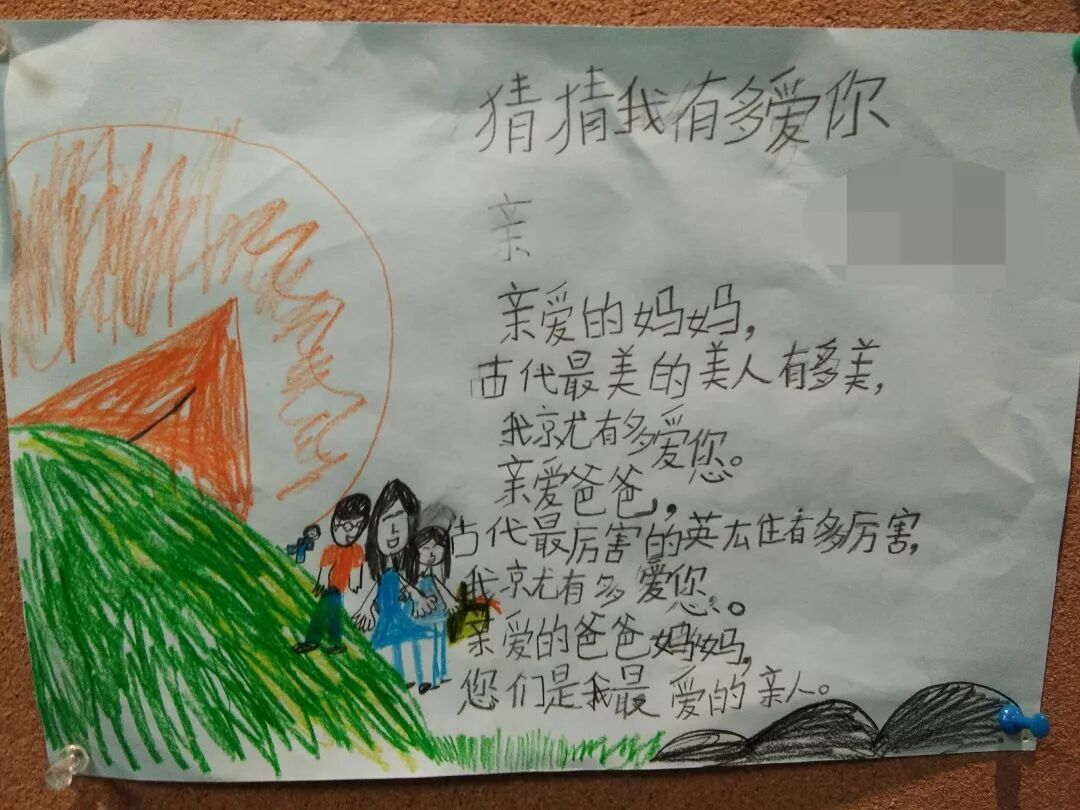 猜猜我有多爱你
亲
亲爱的妈妈，
古代最美的美人有多美，
我就有多爱您。
亲爱爸爸，
古代最厉害的英雄有多厉害，
我就有多爱您。
亲爱的爸爸妈妈，
您们是我最爱的亲人。